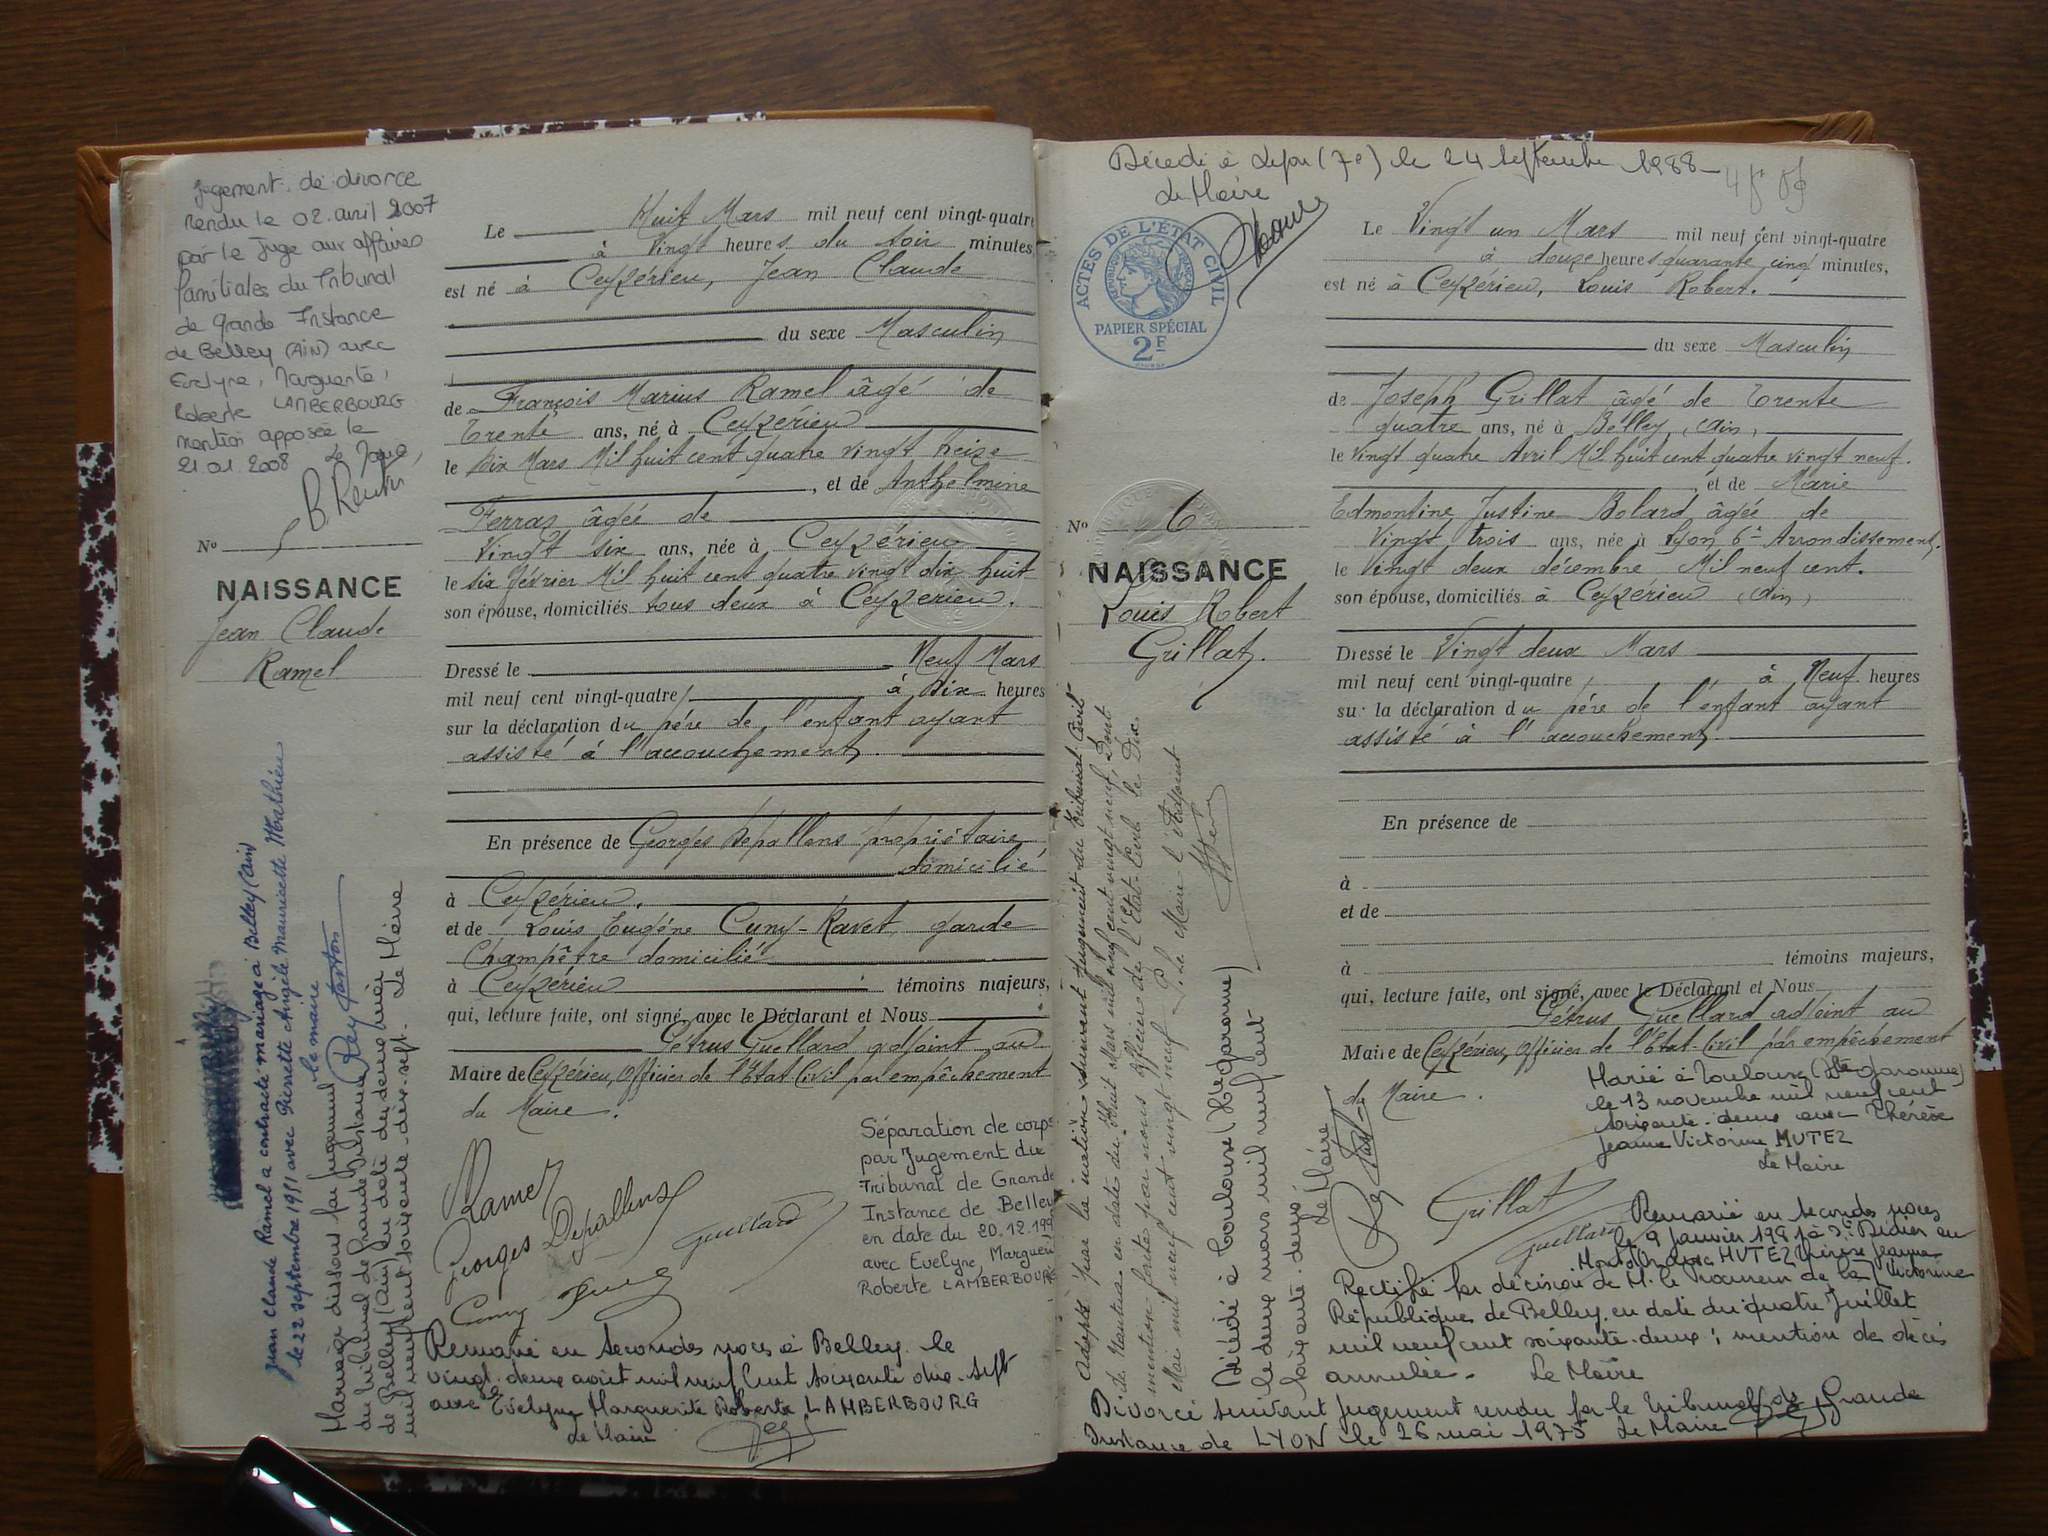 Jugement de divorce
rendu le 02 avril 2007
par le Juge aux affaires
familiales du Tribunal
de Grande Instance
de Belley (AIN) avec
Evelyne, Marguerite,
Roberte LAMBERBOURG
mention apposée le
21.01.2008 Le Maire,
N° 5
NAISSANCE
Jean Claude
Ramel
Jean Claude Ramel a contracté mariage à Belley (Ain)
le 22 septembre 1951 avec Pierrette Angèle Mauricette Mathieu
le maire
Mariage dissous par jugement
du tribunal de Grande Instance
de Belley (Ain) en date du deux mai
mil neuf cent soixante-dix-sept. Le Maire
Le Huit Mars mil neuf cent vingt-quatre
à Vingt heures du soir minutes,
est né à Ceyzérieu, Jean Claude
du sexe Masculin
de François Marius Ramel âgé de
Trente ans, né à Ceyzérieu
le Dix Mars Mil huit cent quatre vingt treize
, et de Anthelmine
Ferras âgée de
Vingt six ans, née à Ceyzérieu
le six février Mil huit cent quatre vingt dix huit
son épouse, domiciliés tous deux à Ceyzérieu.
Dressé le Neuf Mars
mil neuf cent vingt-quatre, à Dix heures
sur la déclaration du père de l'enfant ayant
assisté à l'accouchement.
En présence de Georges Depallens propriétaire
domicilié
à Ceyzérieu.
et de Louis Eugène Cuny-Ravet, garde
Champêtre domicilié
à Ceyzérieu témoins majeurs,
qui, lecture faite, ont signé, avec le Déclarant et Nous
Pétrus Guellard adjoint au
Maire de Ceyzérieu, Officier de l'Etat Civil par empêchement
du Maire.
Ramel
Georges Depallens
Guellard
Cuny
Séparation de corps
par Jugement du
Tribunal de Grande
Instance de Belley
en date du 20.12.199
avec Evelyne, Margueri
Roberte LAMBERBOURG
Remarié en secondes noces à Belley le
vingt-deux août mil neuf cent soixante dix-sept
avec Evelyne Marguerite Roberte LAMBERBOURG
Le Maire
Décédé à Lyon (7e) le 24 septembre 1988
Le Maire
ACTES DE L'ÉTAT CIVIL
PAPIER SPÉCIAL
2F
N° 6
NAISSANCE
Louis Robert
Grillat.
Adopté par la nation suivant Jugement du Tribunal Civil
de Nantua en date du Huit Mars mil neuf cent vingt neuf. Dont
mention faite par nous Officier de l'Etat-Civil le Dix
Mai mil neuf cent vingt neuf P. le Maire l'Adjoint
Décédé à Toulouse (Hte garonne)
le deux mars mil neuf cent
soixante deux
Le Maire
Le Vingt un Mars mil neuf cent vingt-quatre
à douze heures quarante cinq minutes,
est né à Ceyzérieu, Louis Robert.
du sexe Masculin
de Joseph Grillat âgé de Trente
quatre ans, né à Belley, (Ain),
le Vingt quatre Avril Mil huit cent quatre vingt neuf.
, et de Marie
Edmontine Justine Bolard âgée de
Vingt trois ans, née à Lyon 6e Arrondissement.
le Vingt deux décembre Mil neuf cent.
son épouse, domiciliés à Ceyzérieu (Ain)
Dressé le Vingt deux Mars
mil neuf cent vingt-quatre, à Neuf heures
sur la déclaration du père de l'enfant ayant
assisté à l'accouchement.
En présence de
à
et de
à témoins majeurs,
qui, lecture faite, ont signé, avec le Déclarant et Nous
Pétrus Guellard adjoint au
Maire de Ceyzérieu, Officier de l'Etat-Civil par empêchement
du Maire.
Marié à Toulouse (Hte garonne)
le 13 novembre mil neuf cent
soixante-deux avec Thérèse
Jeanne Victorine MUTEZ
Le Maire
Grillat
Guellard
Remarié en secondes noces
le 9 Janvier 1981 à St Didier au
Mont d'Or avec MUTEZ Thérèse Jeanne
Victorine
Rectifié par décision de M. le Procureur de la
République de Belley en date du quatre Juillet
mil neuf cent soixante-deux; mention de décès
annulée. Le Maire
Divorcé suivant Jugement rendu par le Tribunal de Grande
Instance de LYON le 26 mai 1975 Le Maire